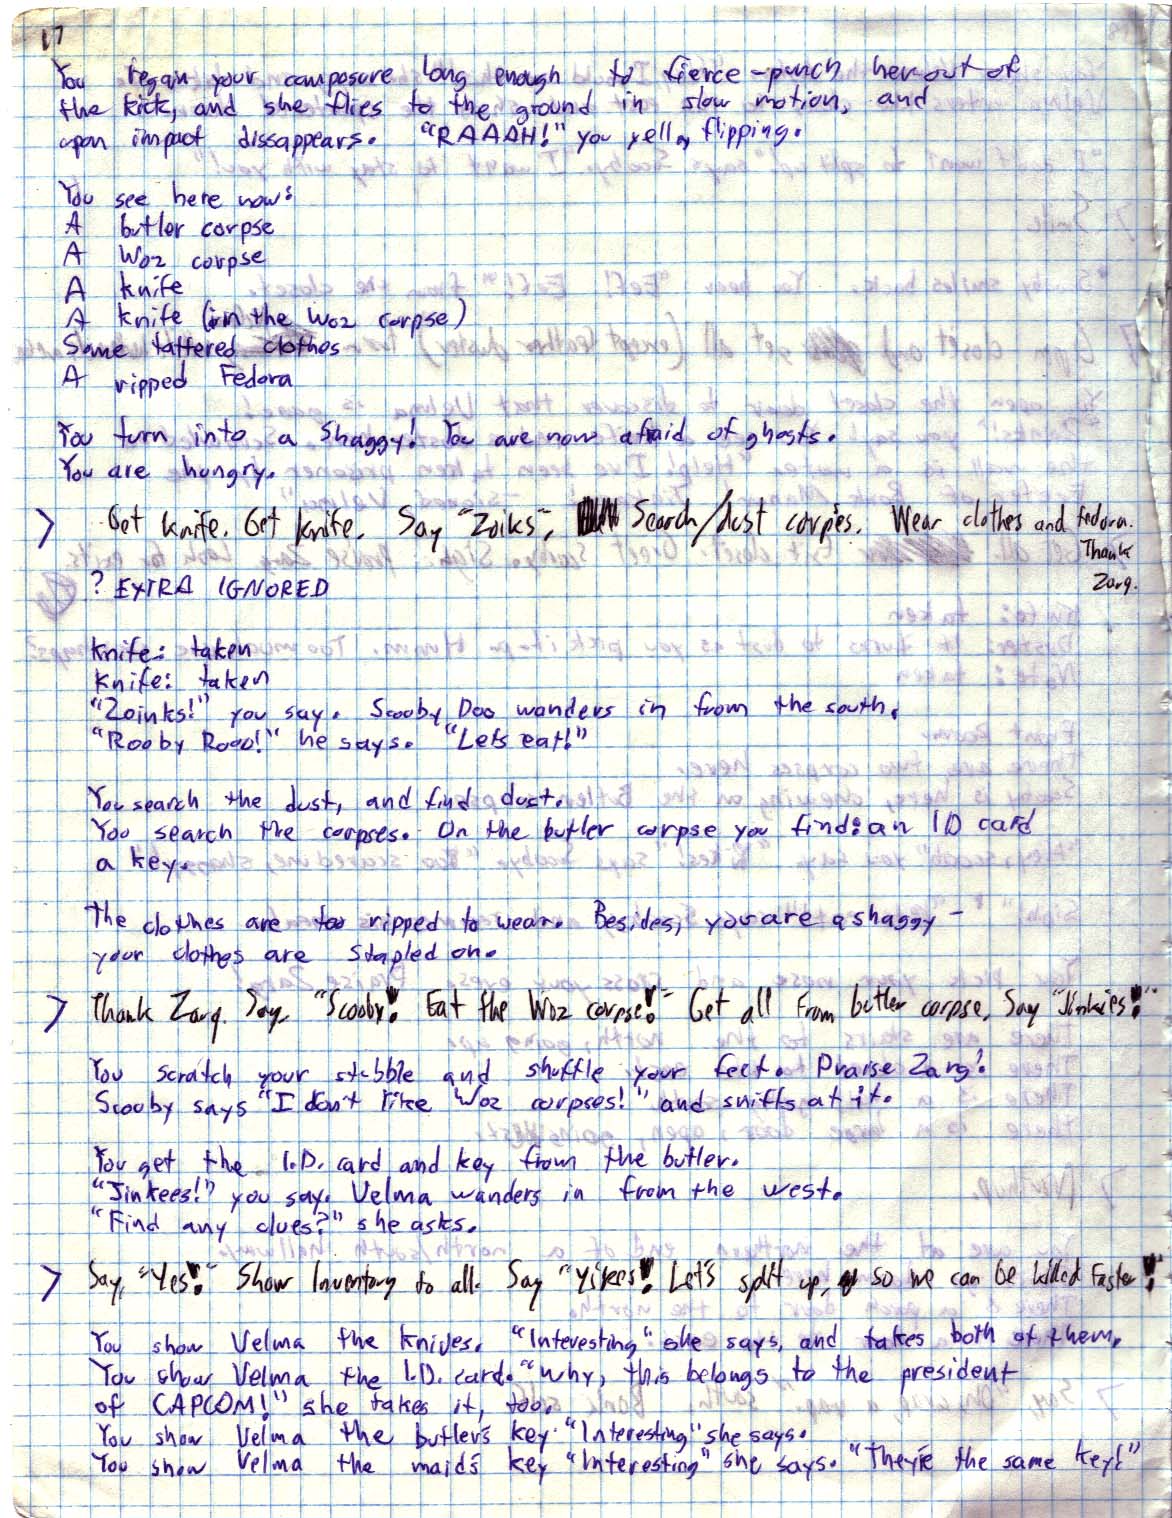 17
You regain your composure long enough to fierce-punch her out of
the kick, and she flies to the ground in slow motion, and
upon impact dissappears. "RAAAH!" you yell, flipping.
You see here now:
A butler corpse
A Woz corpse
A knife
A knife (in the Woz corpse)
Some tattered clothes
A ripped Fedora
You turn into a Shaggy! You are now afraid of ghosts.
You are hungry.
> Get knife. Get knife. Say "Zoiks", Search/dust corpses. Wear clothes and fedora.
Thank
Zarg.
? EXTRA IGNORED
Knife: taken
Knife: taken
"Zoinks!" you say. Scooby Doo wanders in from the south.
"Rooby Rooo!" he says. "Lets eat!"
You search the dust, and find dust.
You search the corpses. On the butler corpse you find: an ID card
a key.
The clothes are too ripped to wear. Besides, you are a shaggy -
your clothes are stapled on.
> Thank Zarg. Say, "Scooby! Eat the Woz corpse!" Get all from butler corpse, Say "Jinkies!"
You scratch your stubble and shuffle your feet. Praise Zarg!
Scooby says "I don't like Woz corpses!" and sniffs at it.
You get the I.D. card and key from the butler.
"Jinkees!" you say. Velma wanders in from the west.
"Find any clues?" she asks.
> Say, "Yes!" Show Inventory to all. Say "Yikes! Let's split up, so we can be killed faster!"
You show Velma the knives. "Interesting" she says, and takes both of them.
You show Velma the I.D. card. "Why, this belongs to the president
of CAPCOM!" she takes it, too.
You show Velma the butler's key. "Interesting" she says.
You show Velma the maid's key "Interesting" she says. "They're the same key!"